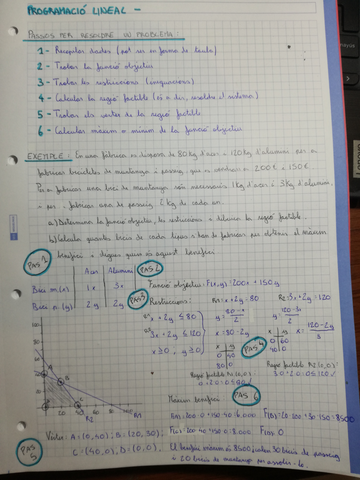 PROGRAMACIÓ LINEAL -
PASSOS PER RESOLDRE UN PROBLEMA:
1- Recopilar dades (pot ser en forma de taula)
2- Trobar la funció objectiu
3- Trobar les restriccions (inequacions)
4- Calcular la regió factible (és a dir, resoldre el sistema)
5- Trobar els vèrtex de la regió factible
6- Calcular màxim o mínim de la funció objectiu
EXEMPLE: En una fàbrica es disposa de 80 kg d'acer i 120 kg d'alumini per a
fabricar bicicletes de muntanya i passeig, que es vendran a 200€ i 150€.
Per a fabricar una bici de muntanya són necessaris 1kg d'acer i 3kg d'alumini,
i per fabricar una de passeig 2 kg de cada un.
a) Determina la funció objectiu, les restriccions i dibuixa la regió factible.
b) Calcula quantes bicis de cada tipus s'han de fabricar per obtenir el màxim
benefici i digues quin és aquest benefici.
PAS 1
Acer Alumini
PAS 2
Bici m.(x) 1x 3x
Funció objectiu: F(x,y): 200x + 150y
Bici p.(y) 2y 2y
PAS 3
Restriccions:
R1: x+2y=80
R2: 3x+2y=120
x+2y≤80
3x+2y≤120
x≥0, y≥0
x=80-2y
PAS 4
Regió factible R1(0,0):
0+2·0≤80
Regió factible R2(0,0):
3·0+2·0≤120
PAS 6
Màxim benefici
F(A)=200·0+150·40=6000
F(B)=20·200+30·150=8500
PAS 5
Vèrtex: A=(0,40); B=(20,30);
C=(40,0); D=(0,0)
F(C)=200·40+150·0=8000
F(D)=0
El benefici màxim és 8500, calen 30 bicis de passeig
i 20 bicis de muntanya per assolir-lo.